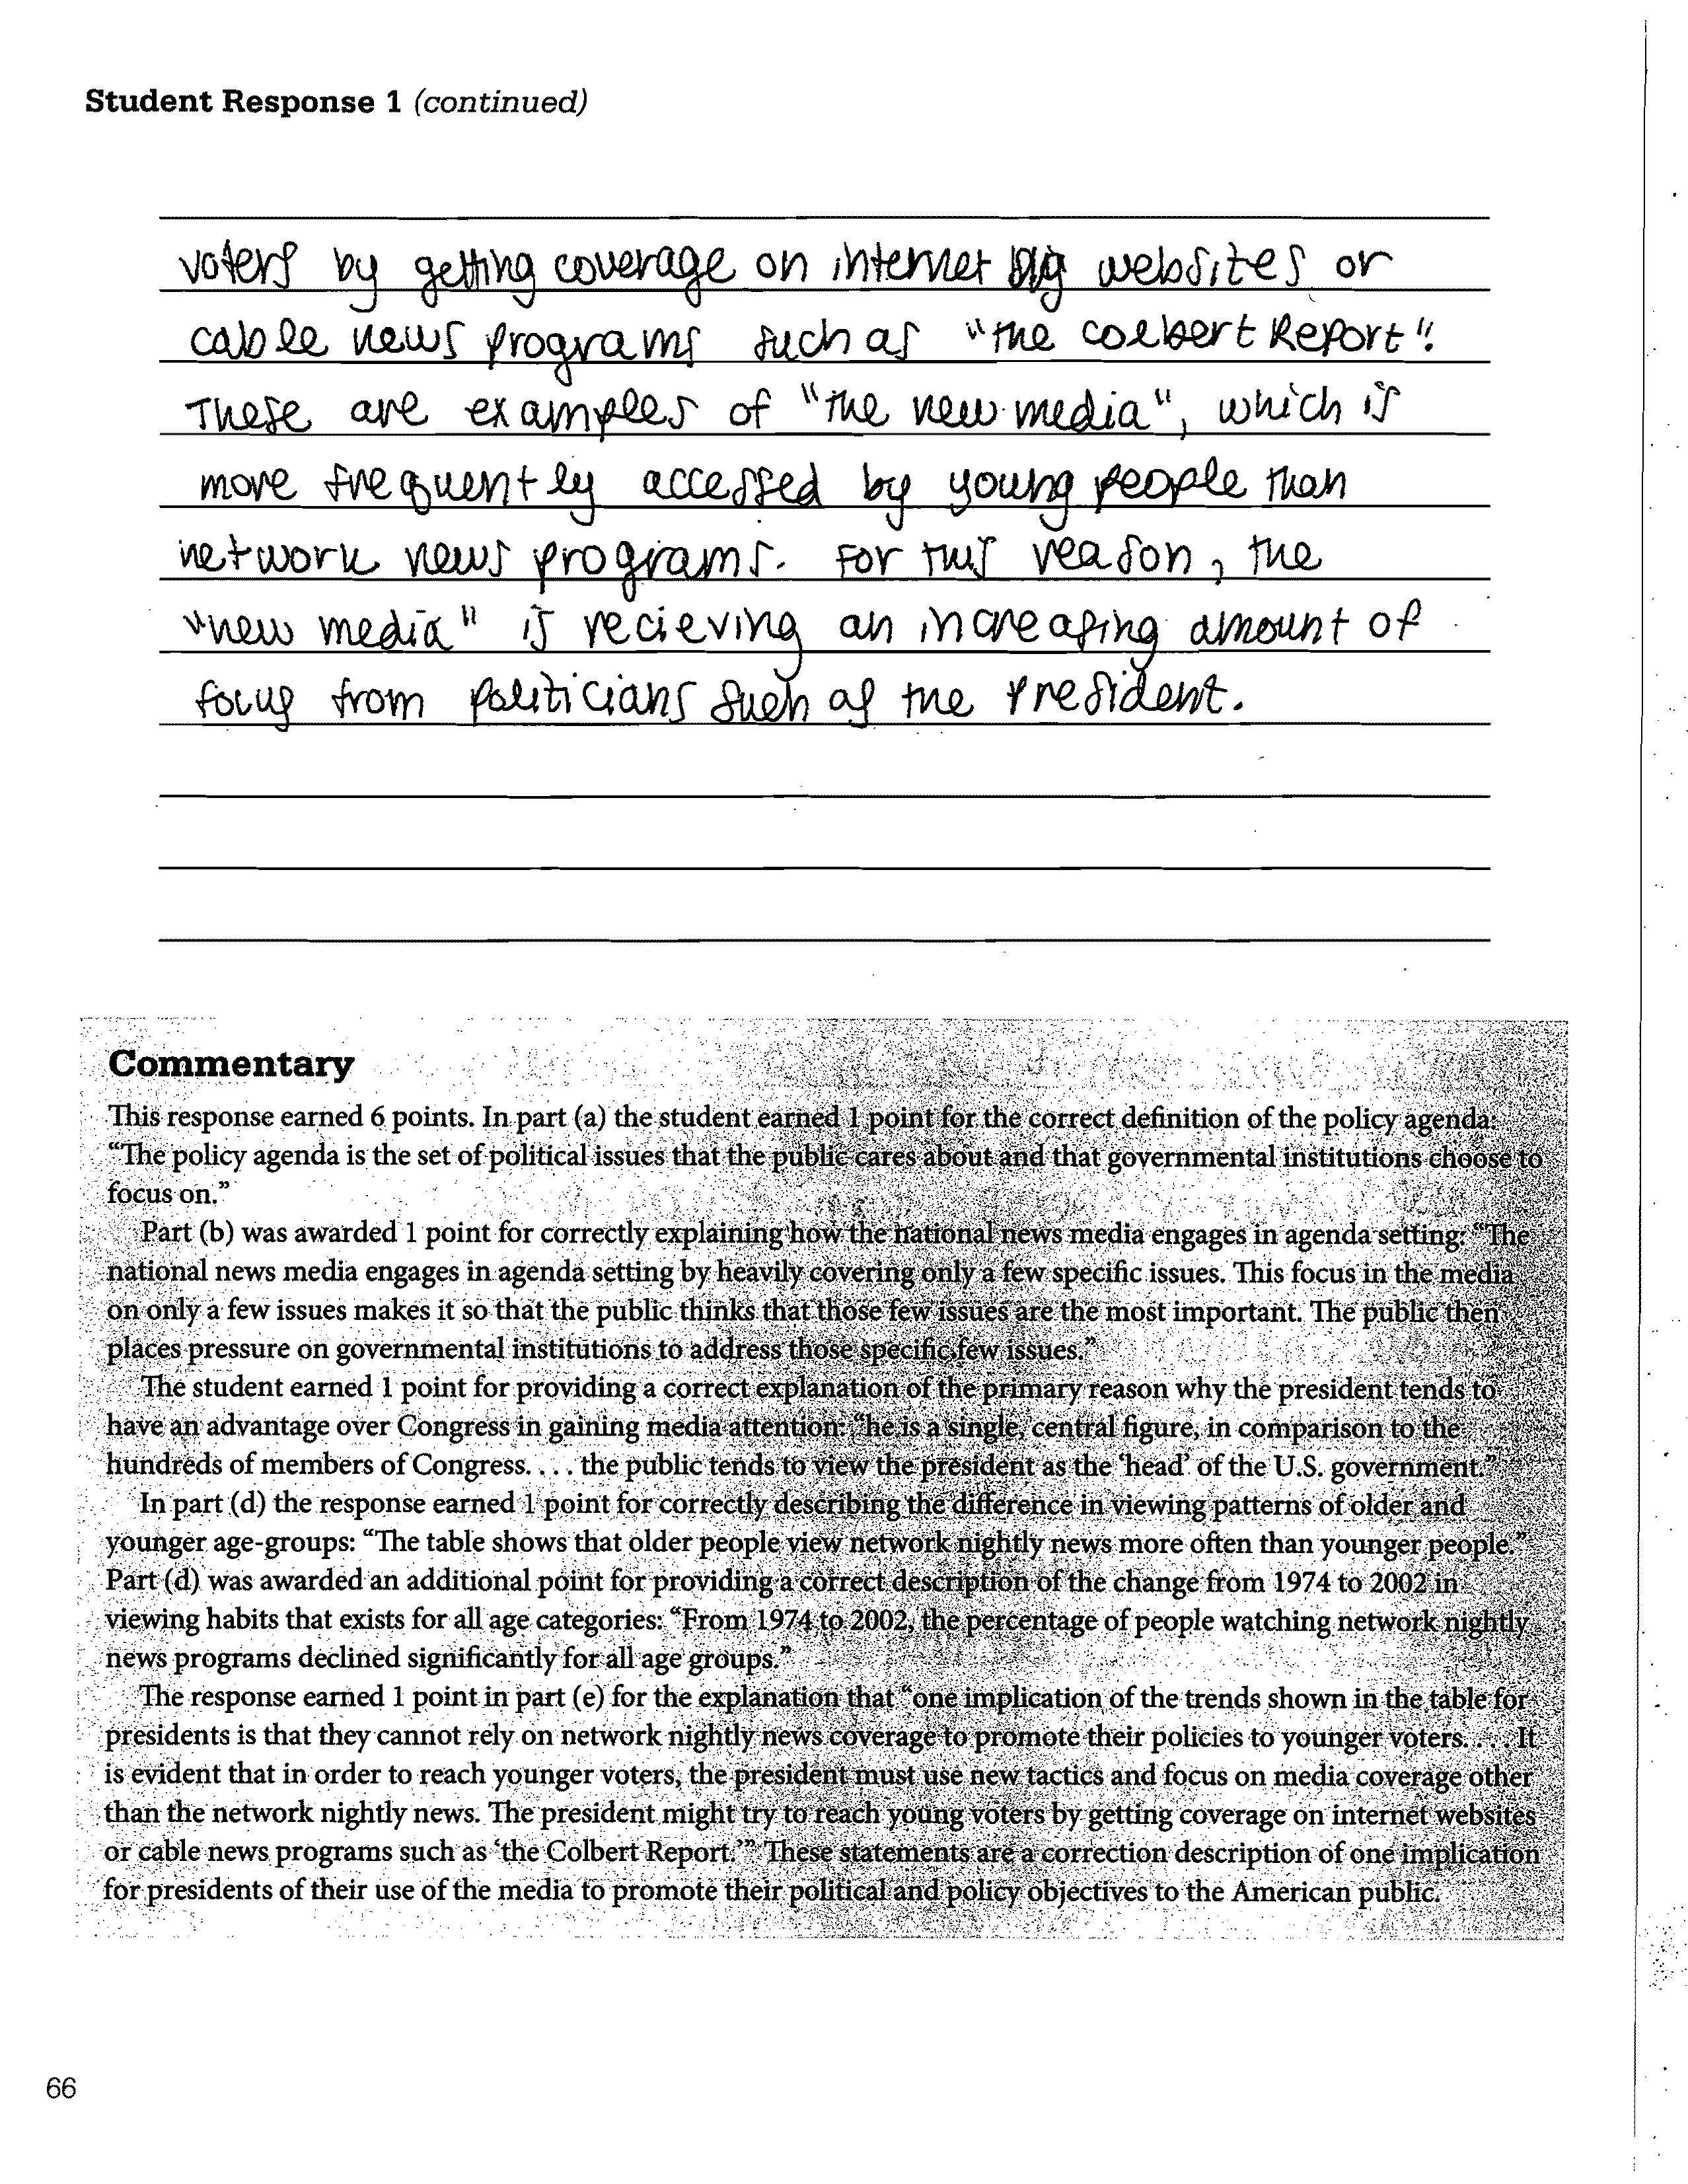 Student Response 1 (continued)
voters by getting coverage on internet websites or
cable news programs such as "the Colbert Report".
These are examples of "the new media", which is
more frequently accessed by young people than
network news programs. For this reason, the
"new media" is recieving an increasing amount of
focus from politicians such as the President.
Commentary
This response earned 6 points. In part (a) the student earned 1 point for the correct definition of the policy agenda:
“The policy agenda is the set of political issues that the public cares about and that governmental institutions choose to
focus on.”
Part (b) was awarded 1 point for correctly explaining how the national news media engages in agenda setting: “The
national news media engages in agenda setting by heavily covering only a few specific issues. This focus in the media
on only a few issues makes it so that the public thinks that those few issues are the most important. The public then
places pressure on governmental institutions to address those specific few issues.”
The student earned 1 point for providing a correct explanation of the primary reason why the president tends to
have an advantage over Congress in gaining media attention: “he is a single, central figure, in comparison to the
hundreds of members of Congress. . . . the public tends to view the president as the ‘head’ of the U.S. government.”
In part (d) the response earned 1 point for correctly describing the difference in viewing patterns of older and
younger age-groups: “The table shows that older people view network nightly news more often than younger people.”
Part (d) was awarded an additional point for providing a correct description of the change from 1974 to 2002 in
viewing habits that exists for all age categories: “From 1974 to 2002, the percentage of people watching network nightly
news programs declined significantly for all age groups.”
The response earned 1 point in part (e) for the explanation that “one implication of the trends shown in the table for
presidents is that they cannot rely on network nightly news coverage to promote their policies to younger voters. . . . It
is evident that in order to reach younger voters, the president must use new tactics and focus on media coverage other
than the network nightly news. The president might try to reach young voters by getting coverage on internet websites
or cable news programs such as ‘the Colbert Report.’” These statements are a correction description of one implication
for presidents of their use of the media to promote their political and policy objectives to the American public.
66